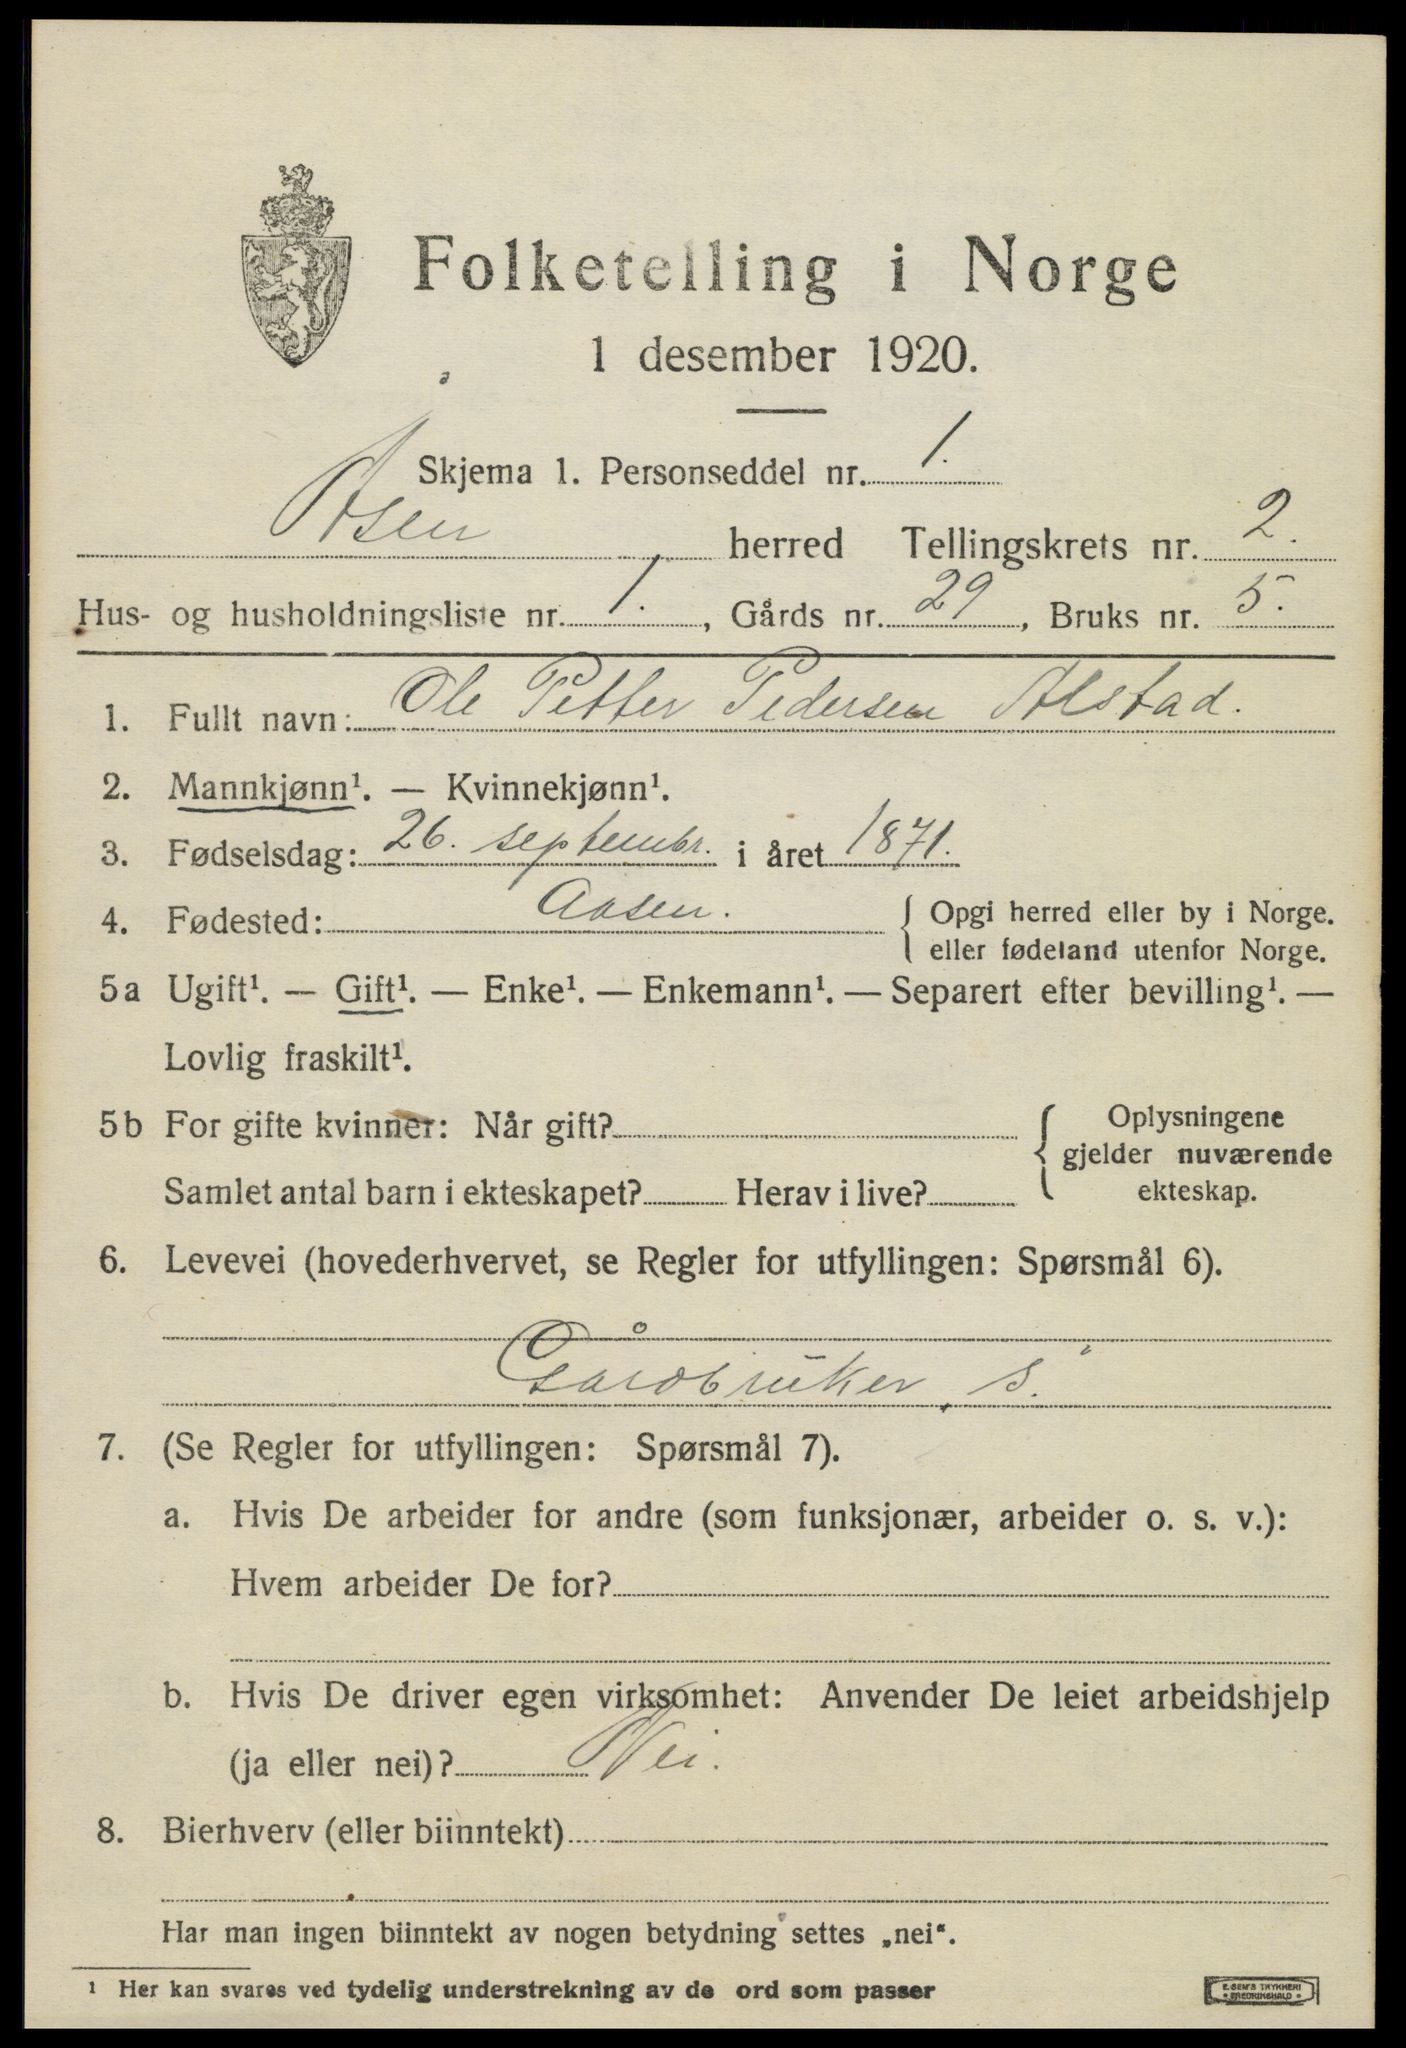 Folketelling i Norge
1 desember 1920.
Skjema 1. Personseddel nr. 1.
Åsen herred Tellingskrets nr. 2.
Hus- og husholdningsliste nr. 1., Gårds nr. 29, Bruks nr. 5.
1. Fullt navn: Ole Petter Pedersen Alstad.
2. Mannkjønn¹. — Kvinnekjønn¹.
3. Fødselsdag: 26. septembr. i året 1871.
4. Fødested: Aasen. { Opgi herred eller by i Norge.
eller fødeland utenfor Norge.
5a Ugift¹. — Gift¹. — Enke¹. — Enkemann¹. — Separert efter bevilling¹. —
Lovlig fraskilt¹.
5b For gifte kvinner: Når gift? { Oplysningene
gjelder nuværende
ekteskap.
Samlet antal barn i ekteskapet? Herav i live?
6. Levevei (hovederhvervet, se Regler for utfyllingen: Spørsmål 6).
Gårdbruker, s.
7. (Se Regler for utfyllingen: Spørsmål 7).
a. Hvis De arbeider for andre (som funksjonær, arbeider o. s. v.):
Hvem arbeider De for?
b. Hvis De driver egen virksomhet: Anvender De leiet arbeidshjelp
(ja eller nei)? Nei.
8. Bierhverv (eller biinntekt)
Har man ingen biinntekt av nogen betydning settes „nei“.
¹ Her kan svares ved tydelig understrekning av de ord som passer
E. SEM'S TRYKKERI
FREDRIKSHALD